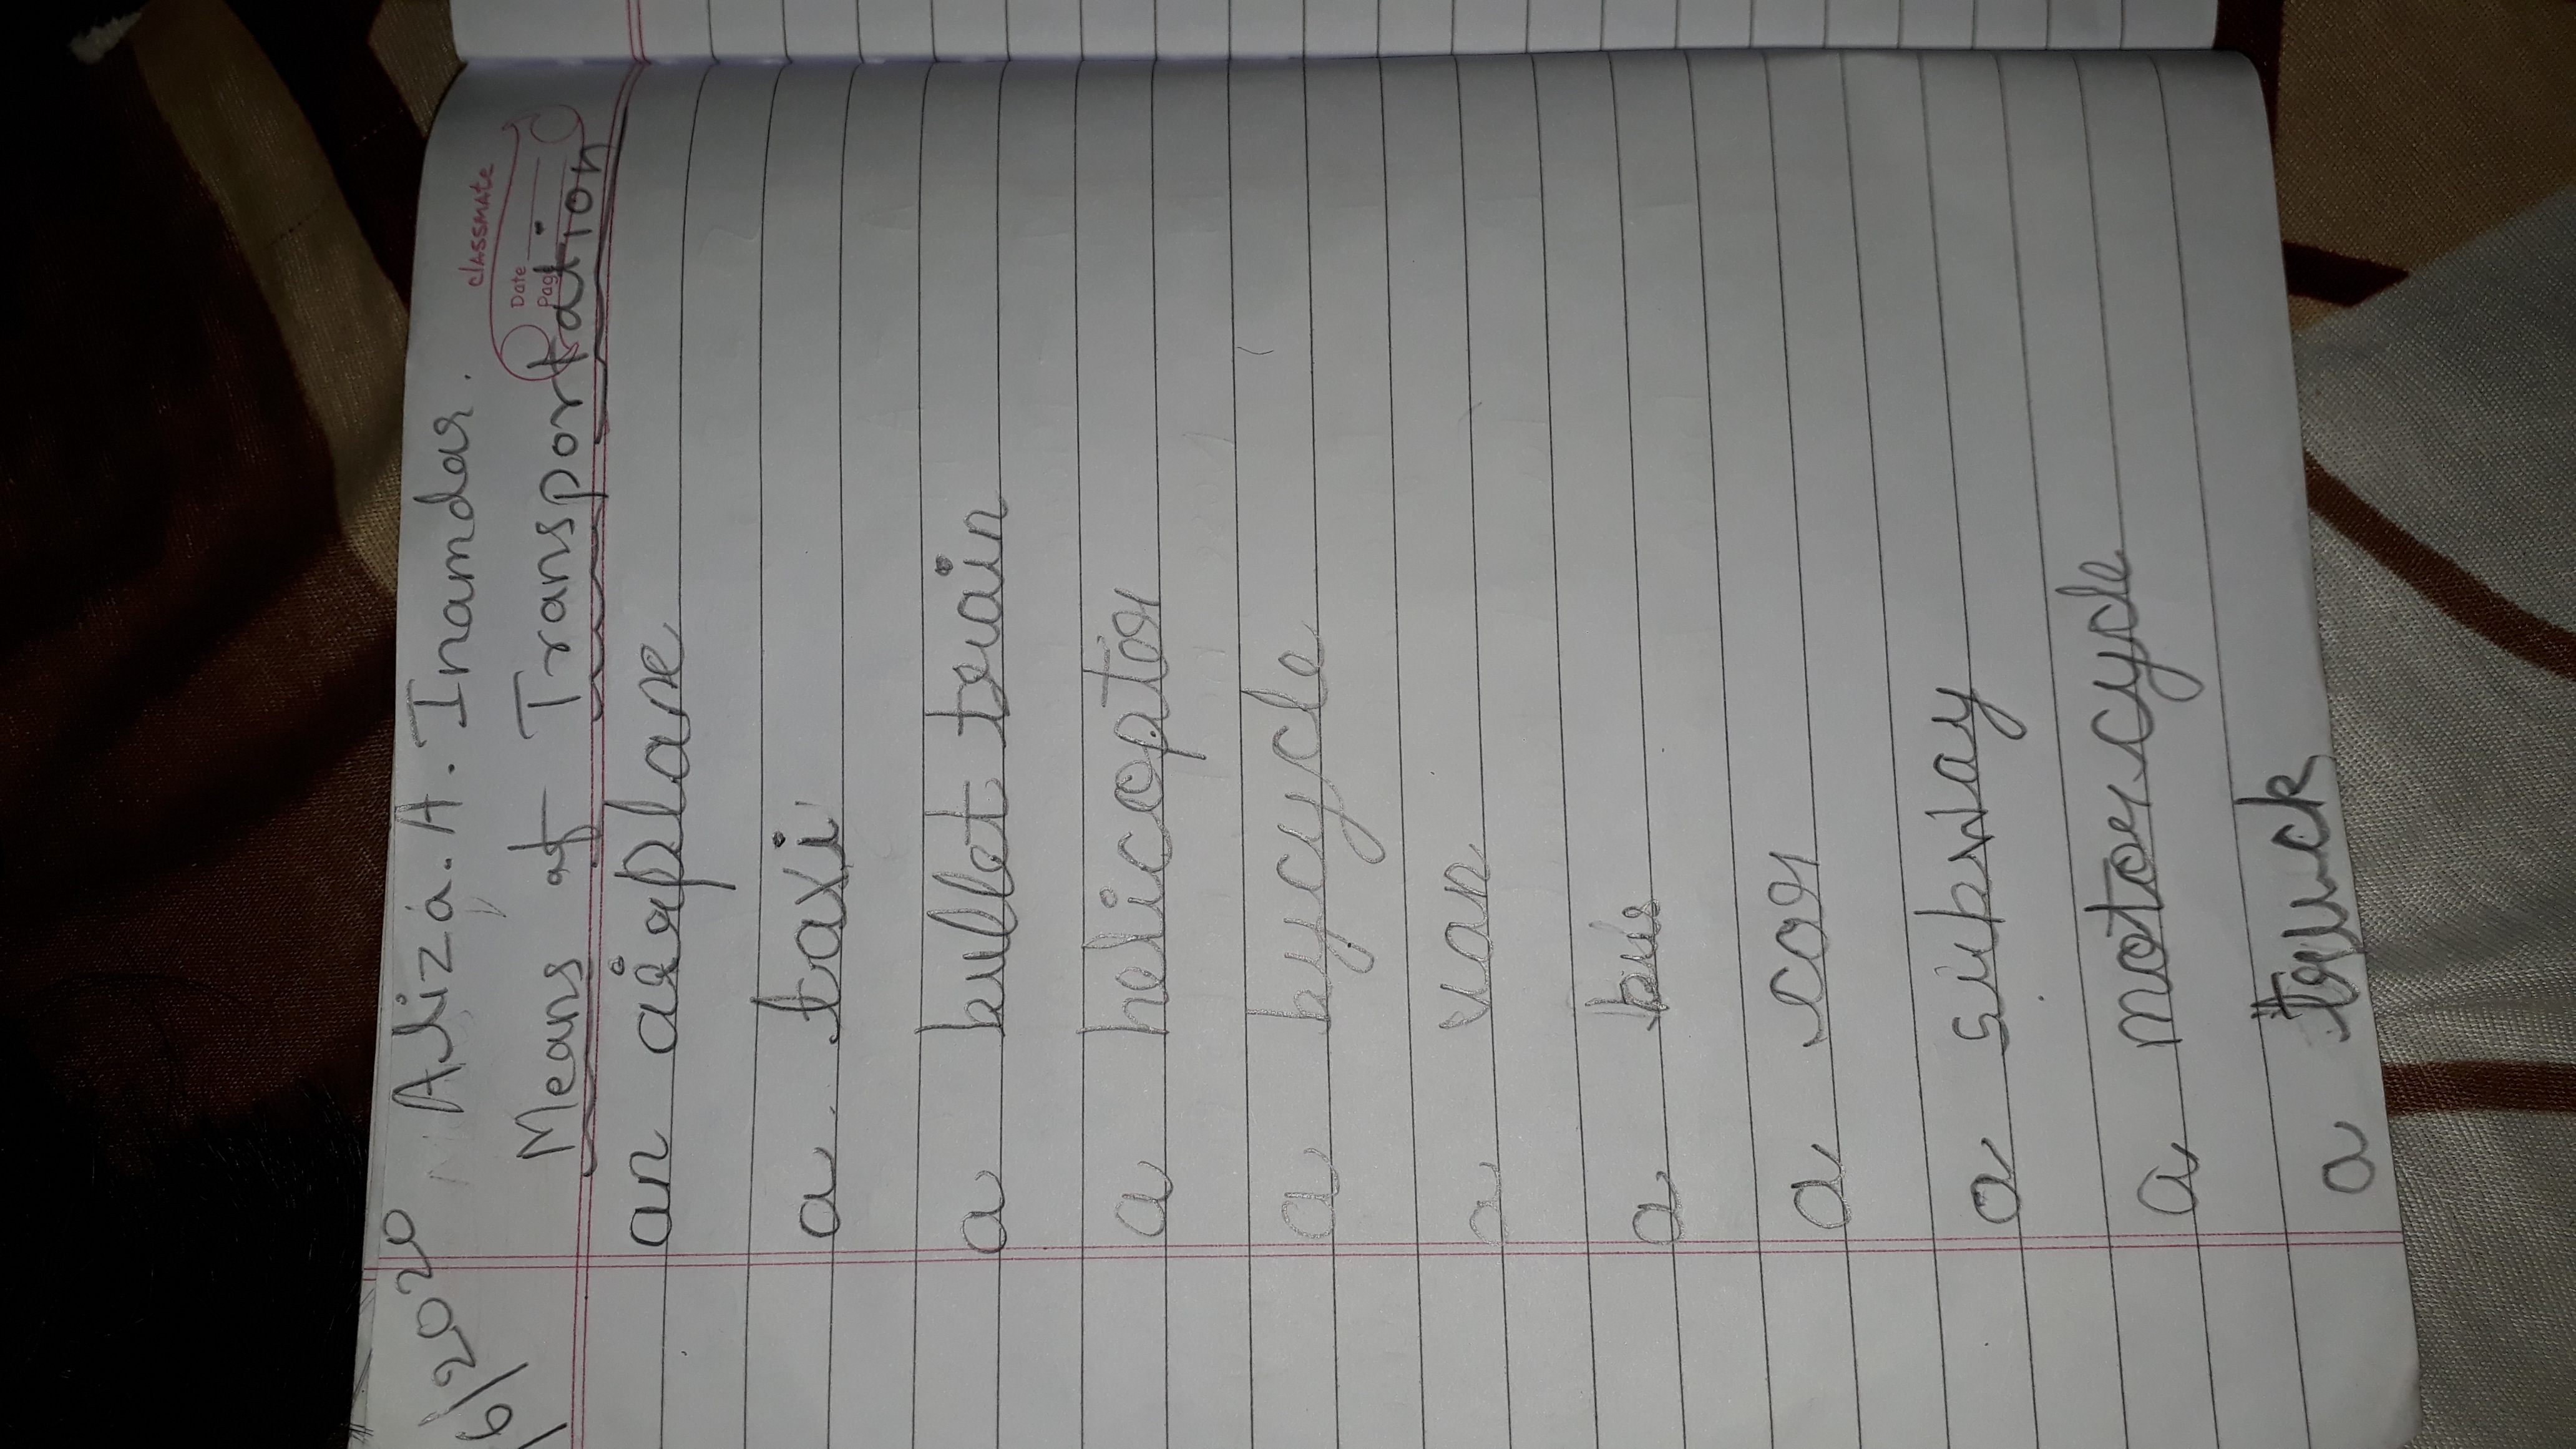 classmate
Date
Page
6/2020 Aliza. A. Inamdar.
Means of Transportation
an airplane
a taxi
a bullet train
a helicoptor
a bycycle
a van
a bus
a car
a subway
a motorcycle
a truck